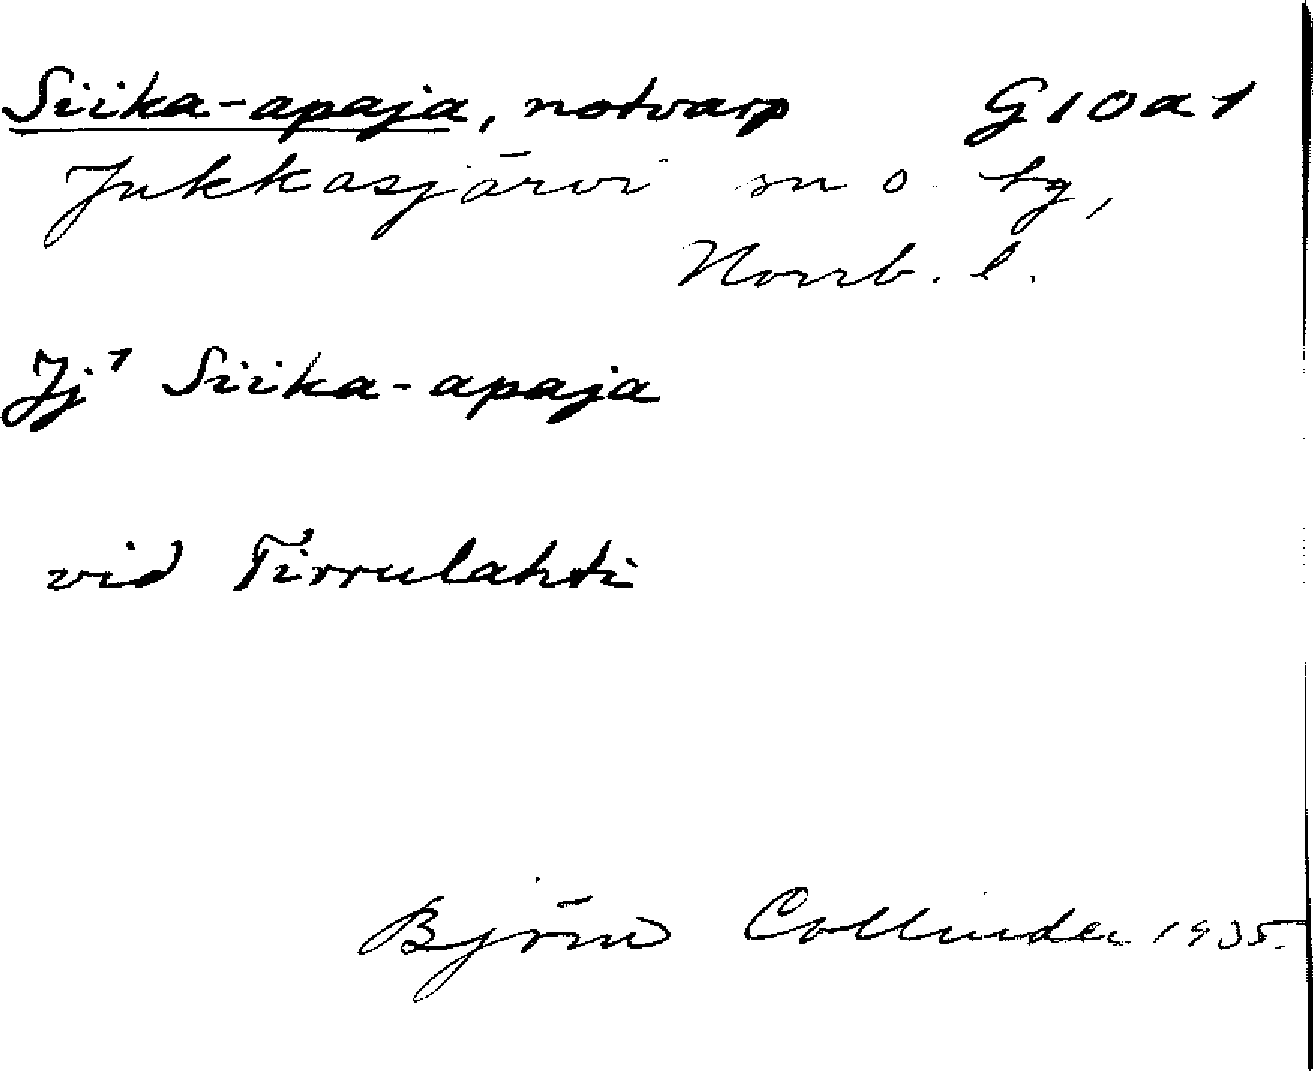 Siika-apaja, notvarp G10a1
Jukkasjärvi sn o. tg,
Norrb. l.
Jj¹ Siika-apaja
vid Tirrulahti
Björn Collinder 1935.